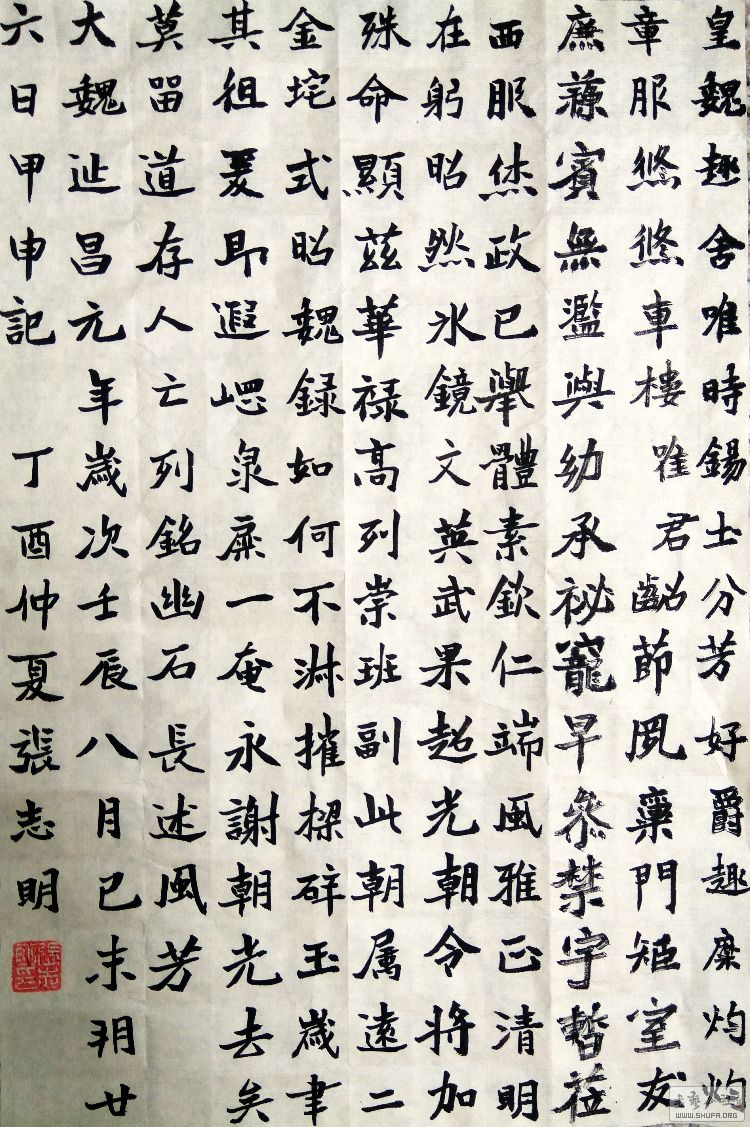 皇魏趣舍唯時錫土分芳好爵趣糜灼灼
章服悠悠車樓唯君齠節夙稟門矩室友
賓無濫與幼承祕寵早參禁宇暫莅
西服烋政已舉體素欽仁端風雅正清明
在躬昭然氷鏡文英武果超光朝令將加
殊命顯茲華禄高列崇班副此朝属遠二
金垞式昭魏録如何不淋摧樑碎玉歲聿
其徂爰即遐泉糜一奄永謝朝光去矣
莫留道存人亡列銘幽石長述風芳
大魏延昌元年歲次壬辰八月己未朔廿
六日甲申記 丁酉仲夏張志明
WWW.SHUFA.ORG